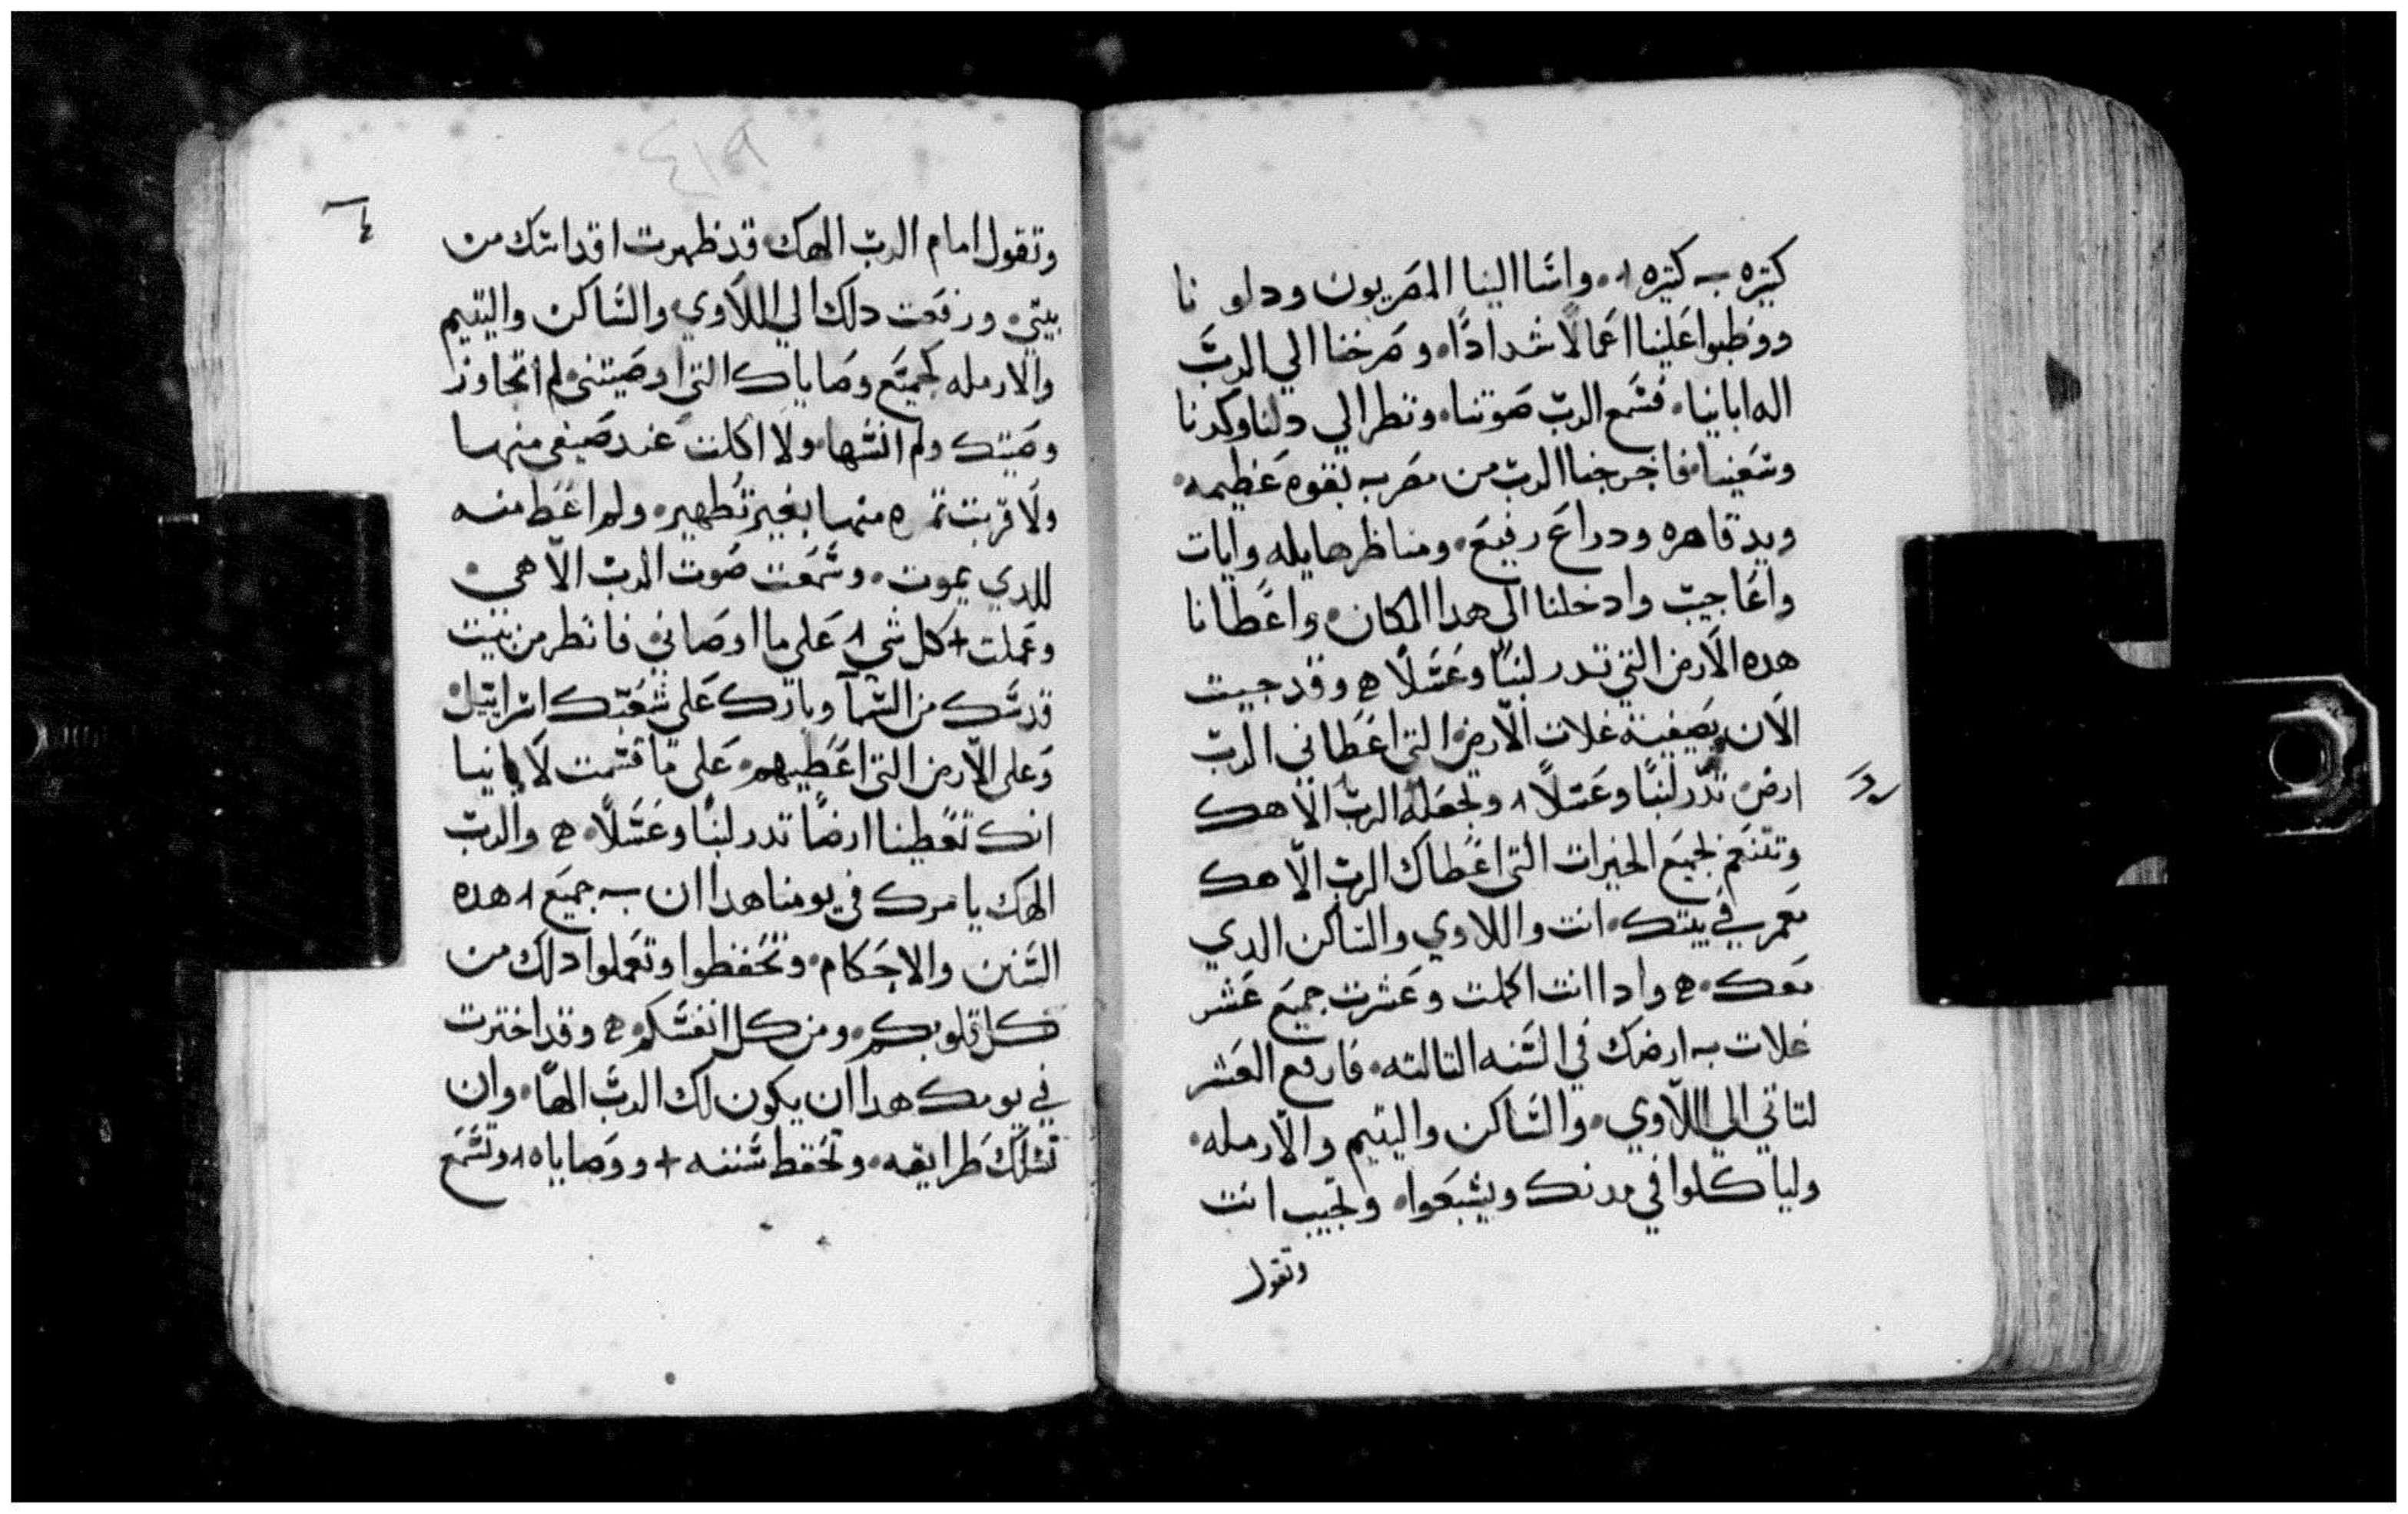 كتيره ؎ كتيره ١. واسا الينا المصريون ودلو نا
ووظبوا علينا اعمالًا شدادًا. وصرخنا الي الربّ
اله ابانيا. فسمع الربّ صوتنا. ونظر الي دلنا وكدنا
وتعبنا. فاخرجنا الربّ من مصر ؎ بقوه عظيمه.
ويد قاهره ودراع رفيع. ومناظر هايله وايات
واعاجيب وادخلنا الى هدا المكان. واعطانا
هده الارض التي تدر لبنًا وعسلًا ه وقد جيت
الان بصفية غلات الارض التي اعطاني الربّ
ارض تدر لبنًا وعسلًا ١ وتجعله الربّ الاهك
وتتنعم بجميع الخيرات التي اعطاك الربّ الاهك
معمر في بيتك. انت واللاوي والساكن الدي
معك. ه وادا انت اكملت وعشرت جميع عشر
غلات ؎ ارضك في السنه التالته. فارفع العشر
لتاتي الي اللاوي. والساكن واليتيم والارمله.
ولياكلوا في مدنك ويشبعوا. وتجيب انت
وتقول
٤١٩
وتقول امام الربّ الهك. قد ظهرت اقداسك من
بيتي. ورفعت دلك الي اللاوي والساكن واليتيم
والارمله كجميع وصاياك التي اوصيتني. لم اتجاوز
وصيتك ولم انسها. ولا اكلت عند منها
ولا قربت منها بغير تطهير. ولم اعط منه
للدي يموت. وسمعت صوت الربّ الاهي.
وعملت + كل شي ١ على ما اوصاني. فانظر من بيت
قدسك من السما وبارك على شعبك اسراييل.
وعلى الارض التي اعطيهم. على ما قسمت لابانيا
انك تعطينا ارضًا تدر لبنًا وعسلًا. ه والربّ
الهك يامرك في يومنا هدا ان ؎ جميع ١ هده
السنن والاحكام. وتحفظوا وتعملوا دلك من
كل قلوبكم. ومن كل انفسكم. ه وقد اخترت
في يومك هدا ان يكون لك الربّ الهًا. وان
تسلك طرايقه. وتحفظ سننه + ووصاياه ١ وتسمع